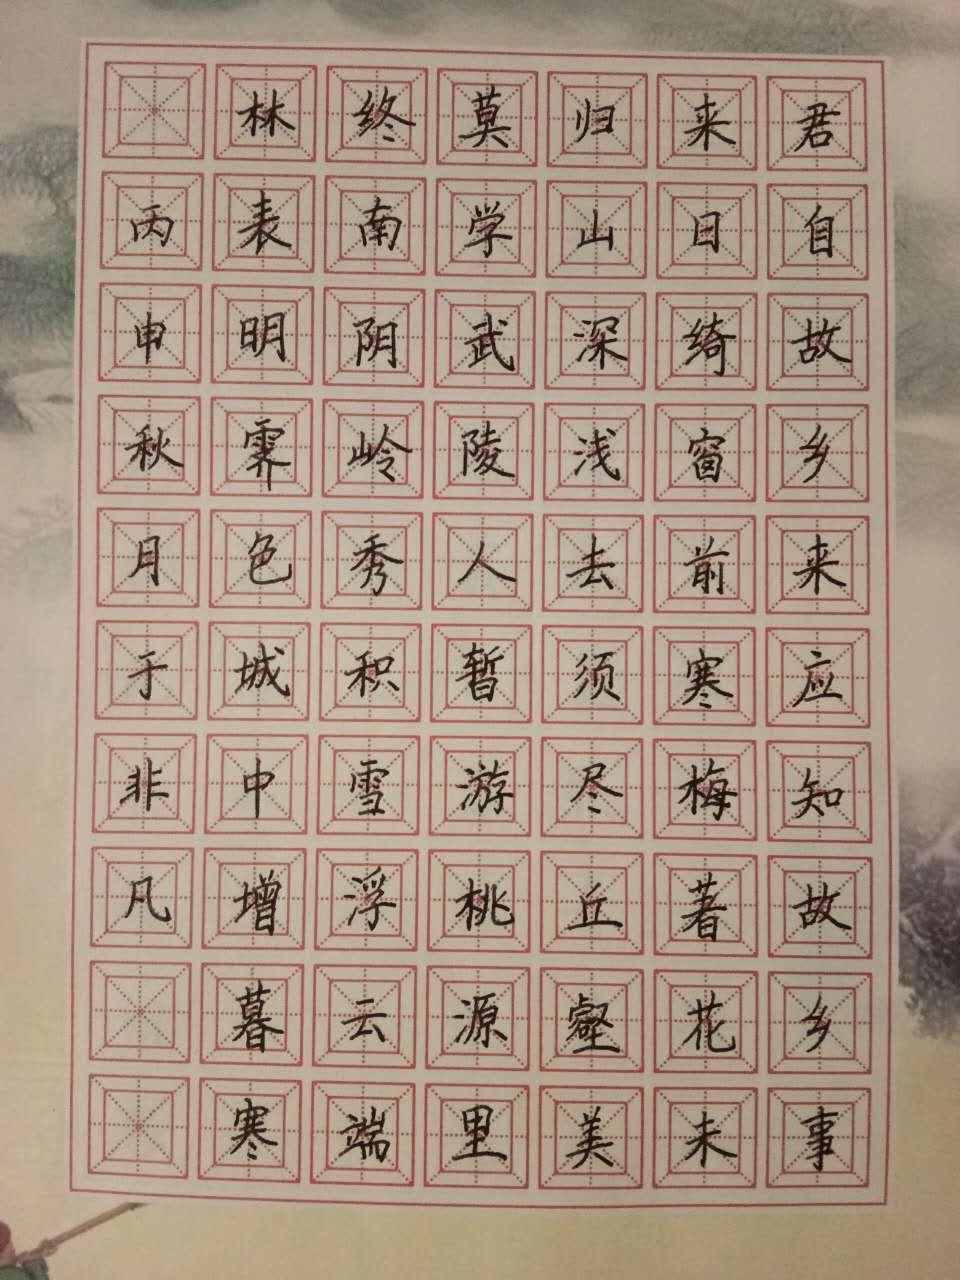 君自故乡来应知故乡事
来日绮窗前寒梅著花未
归山深浅去须尽丘壑美
莫学武陵人暂游桃源里
终南阴岭秀积雪浮云端
林表明霁色城中增暮寒
丙申秋月于非凡